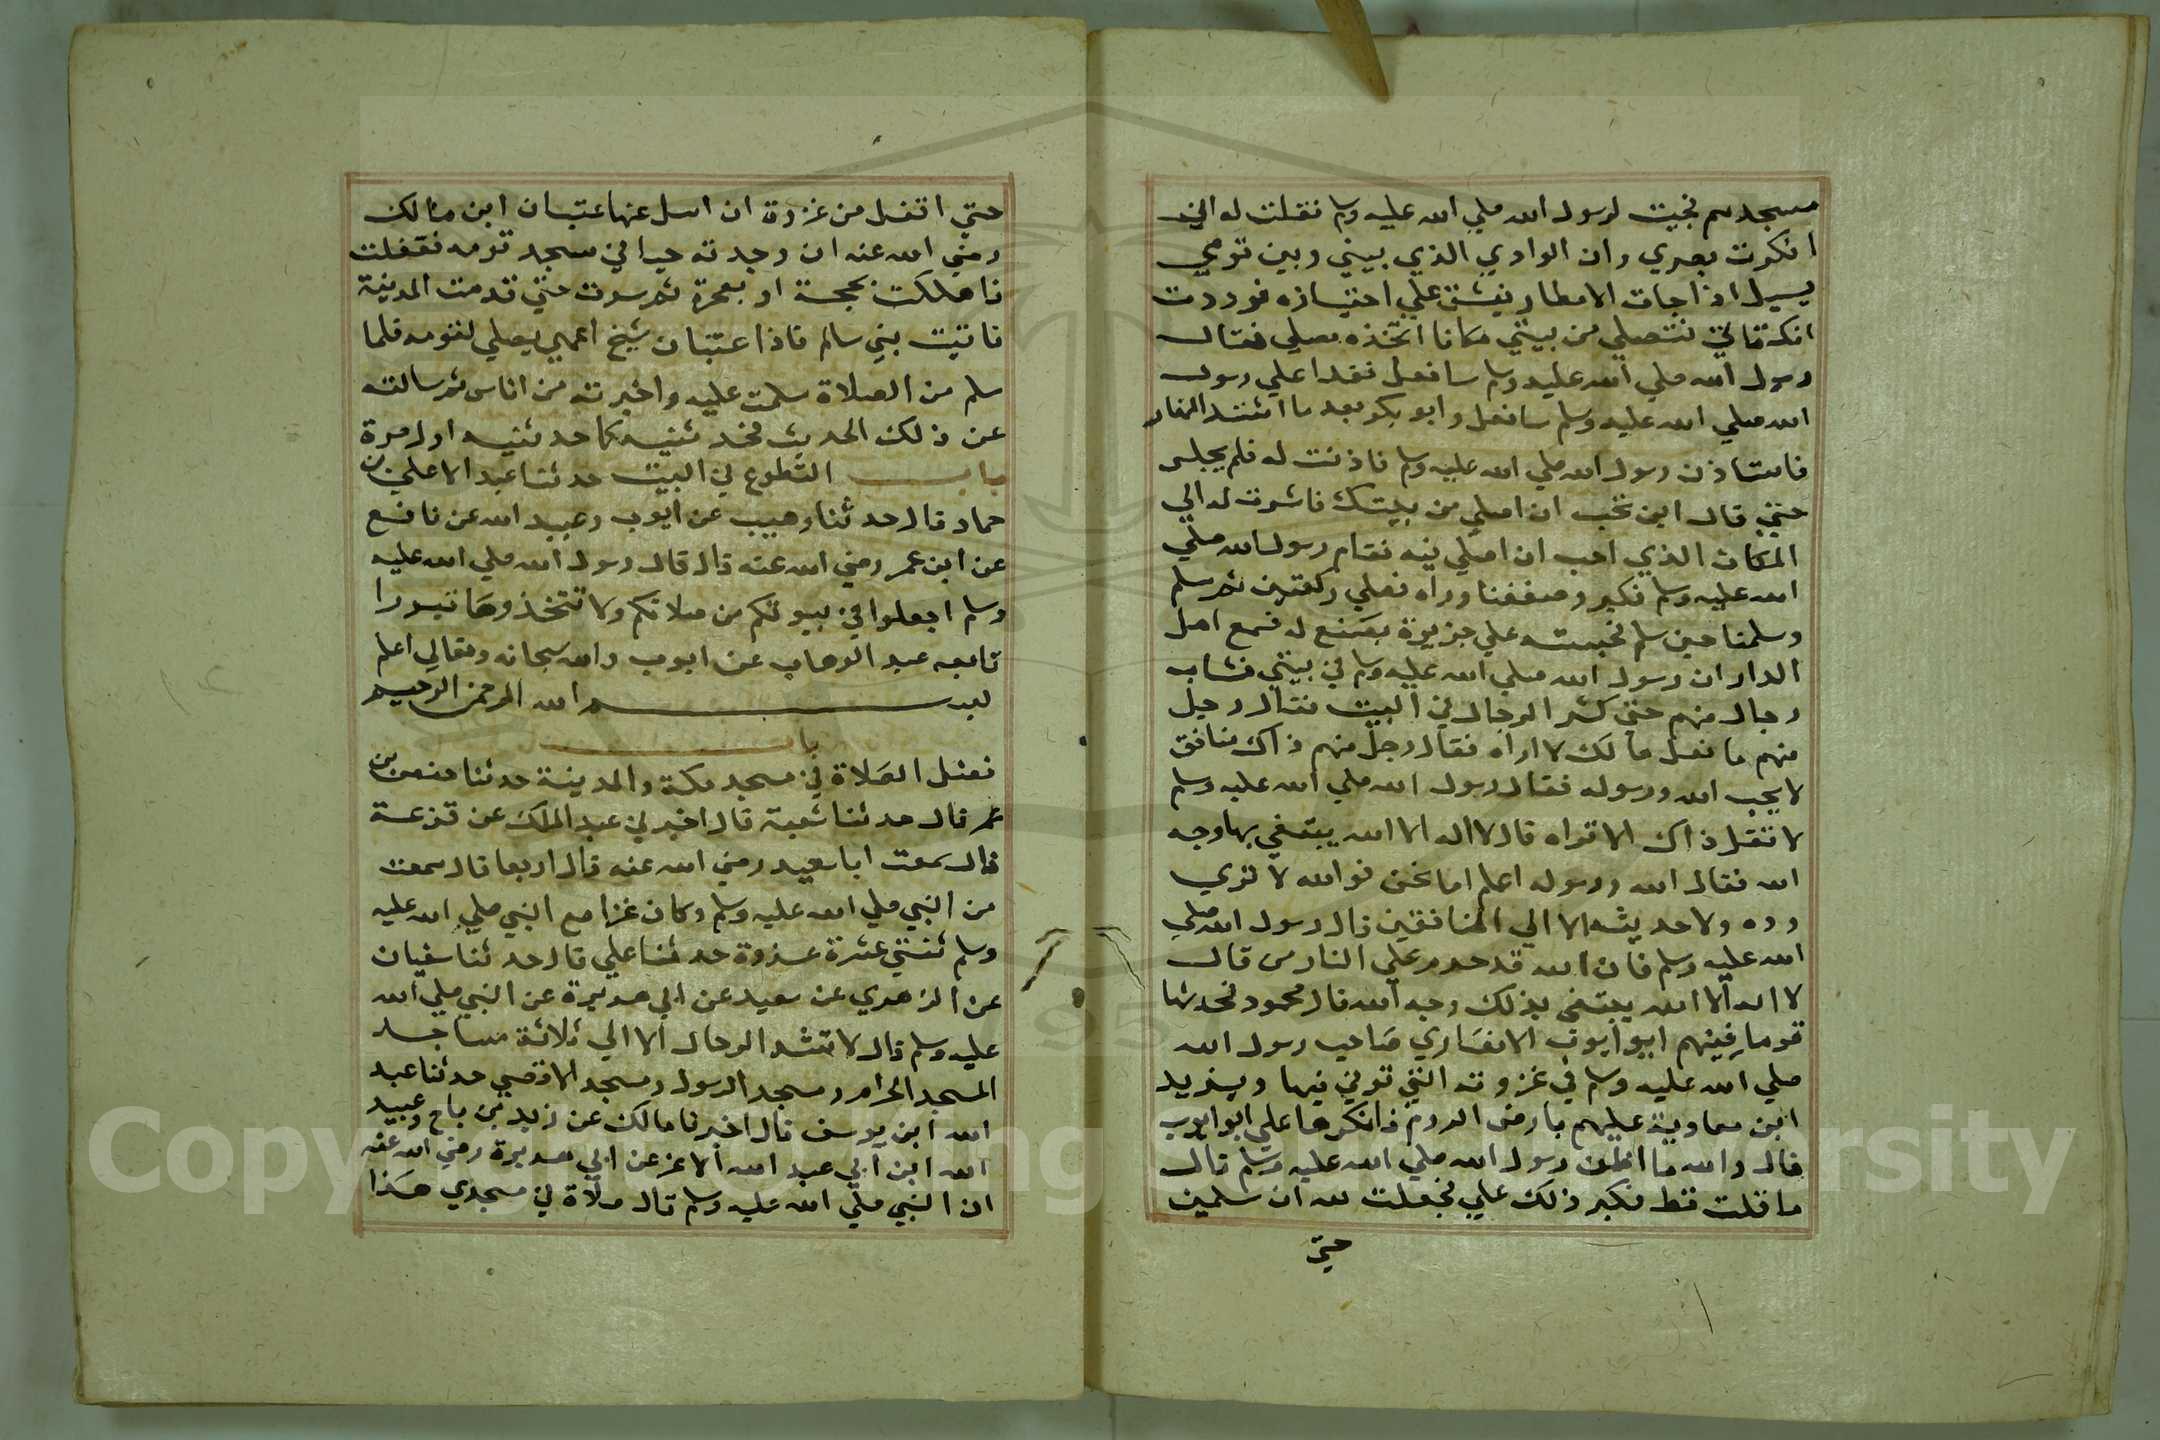 مسجدهم فجيت لرسول الله صلي الله عليه وسلم فقلت له اني
انكرت بصري وان الوادي الذي بيني وبين قومي
يسيل اذا جات الامطار فيشق علي اجتيازه فوددت
انك تاتي فتصلي من بيتي مكانا اتخذه مصلي فقال
رسول الله صلي الله عليه وسلم سافعل فغدا علي رسول
الله صلي الله عليه وسلم سافعل وابو بكر بعد ما اشتد النهار
فاستاذن رسول الله صلي الله عليه وسلم فاذنت له فلم يجلس
حتي قال اين تحب ان اصلي من بيتك فاشرت له الي
المكان الذي احب ان اصلي فيه فقام رسول الله صلي
الله عليه وسلم فكبر وصففنا وراه فصلي ركعتين ثم سلم
وسلمنا حين سلم فحبسته علي خزيرة يصنع له فسمع اهل
الدار ان رسول الله صلي الله عليه وسلم في بيتي فثاب
رجال منهم حتي كثر الرجال في البيت فقال رجل
منهم ما فعل مالك لا اراه فقال رجل منهم ذاك منافق
لا يحب الله ورسوله فقال رسول الله صلي الله عليه وسلم
لا تقل ذاك الا تراه قال لا اله الا الله يبتغي بها وجه
الله فقال الله ورسوله اعلم اما نحن فوالله لا نري
وده ولا حديثه الا الي المنافقين قال رسول الله صلي
الله عليه وسلم فان الله قد حرم علي النار من قال
لا اله الا الله يبتغي بذلك وجه الله قال محمود فحدثها
قوما فيهم ابو ايوب الانصاري صاحب رسول الله
صلي الله عليه وسلم في غزوته التي توفي فيها ويزيد
ابن معاوية عليهم بارض الروم فانكرها علي ابو ايوب
قال والله ما اظن رسول الله صلي الله عليه وسلم قال
ما قلت قط فكبر ذلك علي فجعلت لله ان سلمين
حتي
حتي اقفل من غزوة ان اسل عنها عتبان ابن مالك
رضي الله عنه ان وجدته حيا في مسجد قومه فقفلت
فاهللت بحجة او بعمرة ثم سرت حتي قدمت المدينة
فاتيت بني سالم فاذا عتبان شيخ اعمي يصلي لقومه فلما
سلم من الصلاة سلمت عليه واخبرته من اناس ثم سالته
عن ذلك الحديث فحدثنيه كما حدثنيه اول مرة
باب التطوع في البيت حدثنا عبد الاعلي بن
حماد قال حدثنا وهيب عن ايوب وعبيد الله عن نافع
عن ابن عمر رضي الله عنه قال قال رسول الله صلي الله عليه
وسلم اجعلوا في بيوتكم من صلاتكم ولا تتخذوها قبورا
تابعه عبد الوهاب عن ايوب والله سبحانه وتعالي اعلم
بسم الله الرحمن الرحيم
باب
فضل الصلاة في مسجد مكة والمدينة حدثنا حفص بن
عمر قال حدثنا شعبة قال اخبرني عبد الملك عن قزعة
قال سمعت ابا سعيد رضي الله عنه قال اربعا قال سمعت
من النبي صلي الله عليه وسلم وكان غزا مع النبي صلي الله عليه
وسلم ثنتي عشرة غزوة حدثنا علي قال حدثنا سفيان
عن الزهري عن سعيد عن ابي هريرة عن النبي صلي الله
عليه وسلم قال لا تشد الرحال الا الي ثلاثة مساجد
المسجد الحرام ومسجد الرسول ومسجد الاقصي حدثنا عبد
الله ابن يوسف قال اخبرنا مالك عن زيد بن باح وعبيد
الله ابن ابي عبد الله الاغر عن ابي هريرة رضي الله عنه
ان النبي صلي الله عليه وسلم قال صلاة في مسجدي هذا